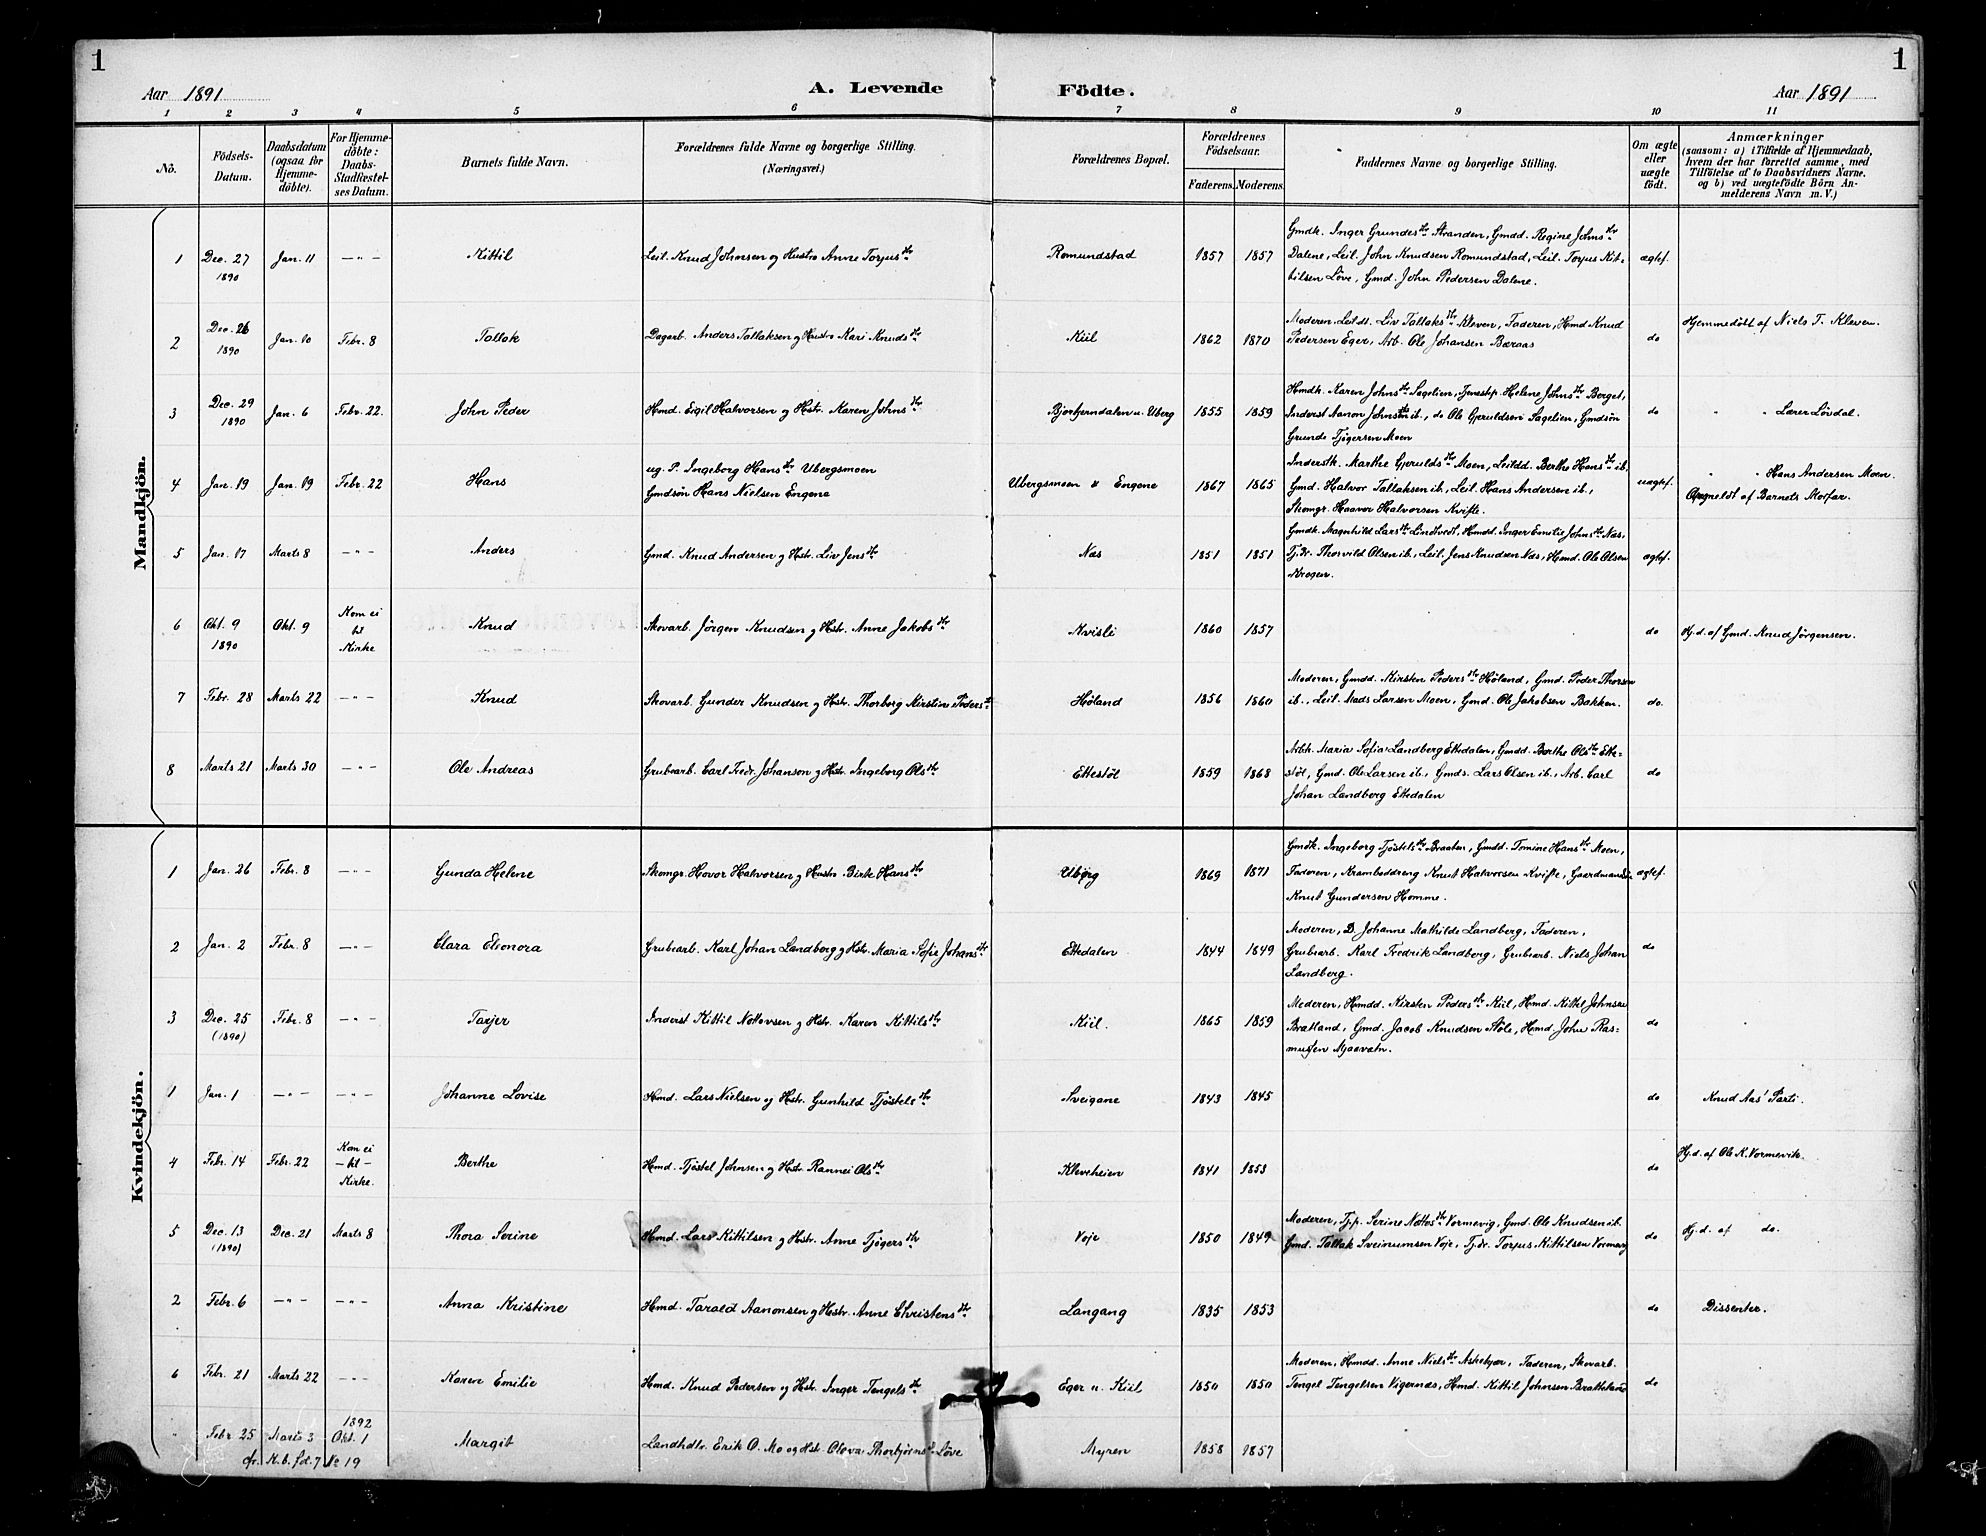 1
1
Aar 1891
A. Levende Födte.
Aar 1891
1 2 3 4 5 6 7 8 9 10 11
No.
Födsels-Datum.
Daabsdatum (ogsaa for Hjemme-döbte).
For Hjemme-döbte: Daabs-Stadfæstel-ses Datum.
Barnets fulde Navn.
Forældrenes fulde Navne og borgerlige Stilling.
(Næringsvei.)
Forældrenes Bopæl.
Forældrenes Födselsaar.
Faderens. Moderens.
Faddernes Navne og borgerlige Stilling.
Om ægte eller uægte födt.
Anmærkninger
(saasom: a) i Tilfælde af Hjemmedaab,
hvem der har forrettet samme, med
Tilföielse af to Daabsvidners Navne,
og b) ved uægtefödte Börn An-
melderens Navn m.V.)
Mandkjön.
1 Dec. 27 1890 Jan. 11 — " — Kittil Leil. Knud Johnsen og Hustro Anne Torjusdtr Romundstad 1857 1857 ægtef.
Gmdk. Inger Grundesdtr Stranden, Gmdd. Regine Johnsdtr
Dalene, Leil. John Knudsen Romundstad, Leil. Torjus Kit-
tilsen Löve, Gmd. John Pedersen Dalene.
2 Dec. 26 1890 Jan. 10 Febr. 8 Tallak Dagarb. Anders Tallaksen og Hustro Kari Knudsdtr Kiil 1862 1870 do Hjemmedöbt af Niels T. Kleven.
Moderen, Leildt. Liv Tallaksdtr Kleven, Faderen, Hmd Knud
Pedersen Eger, Arb. Ole Johansen Bæraas
3 Dec. 29 1890 Jan. 6 Febr. 22. John Peder Hmd. Eigil Halvorsen og Hstr. Karen Johnsdtr Bjorbjerndalen u. Uberg 1855 1859 do " " Lærer Lövdal.
Hmdk. Karen Johnsdtr Sagelien, Tjenestp. Helene Johnsdtr Borget,
Inderst Aanon Johnsen ib., do Ole Gjeruldsen Sagelien, Gmdsön
Grunde Tjögersen Moen
4 Jan. 19 Jan. 19 Febr. 22 Hans
ug. P. Ingeborg Hansdtr Ubergsmoen
Gmdsön Hans Nielsen Engene
Ubergsmoen & Engene 1867 1865 uægtef.
Inderstk. Marthe Gjeruldsdtr Moen, Leildd. Berthe Hansdtr ib.
Gmd. Halvor Tallaksen ib., Leil. Hans Andersen ib.,
Skomgr. Haavor Halvorsen Kvifte.
" " Hans Andersen Moen.
Opgneldt af Barnets Morfar.
5 Jan. 17 Marts 8 — " — Anders Gmd. Knud Andersen og Hstr. Liv Jensdtr Næs 1851 1851 ægtef.
Gmdk. Magnhild Larsdtr Lindtveit, Hmdd. Inger Emilie Johnsdtr Næs,
Tj.dr. Thorvild Olsen ib., Leil. Jens Knudsen Næs, Hmd. Ole Olsen
Krogen.
6 Okt. 9 1890 Okt. 9 Kom ei til Kirke Knud Skovarb. Jörgen Knudsen og Hstr. Anne Jakobsdtr Kvisli 1860 1857 do Hj.d. af Gmd. Knud Jörgensen.
7 Febr. 28 Marts 22 — " — Knud Skovarb. Gunder Knudsen og Hstr. Thorborg Kirstine Pedersdtr Höland 1856 1860 do.
Moderen, Gmdd. Kirsten Pedersdtr Höland, Gmd. Peder Thorsen
ib., Leil. Mads Larsen Moen, Gmd. Ole Jakobsen Bakken.
8 Marts 21 Marts 30 — " — Ole Andreas Grubearb. Carl Fredr. Johanson og Hstr. Ingeborg Olsdtr Ettestöl 1859 1868 do
Arbk. Maria Sofia Landberg Ettedalen, Gmdd. Berthe Olsdtr Ette-
stöl, Gmd. Ole Larsen ib., Gmds. Lars Olsen ib., Arb. Carl
Johan Landberg Ettedalen
Kvindekjön.
1 Jan. 26 Febr. 8 — " — Gunda Helene Skomgr. Hovor Halvorsen og Hustr. Birte Hansdtr Uberg 1869 1871 ægtef.
Gmdk. Ingeborg Tjöstelsdtr Braaten, Gmdd. Tomine Hansdtr Moen,
Faderen, Krambeddreng Knut Halvorsen Kvifte, Gaardmand
Knut Gundersen Homme.
2 Jan. 2 Febr. 8 — " — Clara Eleonora Grubearb. Karl Johan Landberg og Hstr. Maria Sofie Johansdtr Ettedalen 1844 1849 do
Moderen, D. Johanne Mathilde Landberg, Faderen,
Grubearb. Karl Fredrik Landberg, Grubearb. Niels Johan
Landberg.
3 Dec. 25 (1890) Febr. 8 — " — Tarjer Inderst Kittil Nottovsen og Hstr. Karen Kittilsdtr Kiil. 1865 1859 do
Moderen, Hmdd. Kirsten Pedersdtr Kiil, Hmd. Kittil Johnsen
Bratland, Gmd. Jacob Knudsen Stöle, Hmd. John Ras-
mussen Mjaavatn.
1 Jan. 1 — " — — " — Johanne Lovise Hmd. Lars Nielsen og Hstr. Gunhild Tjöstelsdtr Sveigane 1843 1845 do Knud Aas' Parti.
4 Febr. 14 Febr. 22 Kom ei — til — Kirke. Berthe Hmd. Tjöstel Johnsen og Hstr. Rannei Olsdtr Kleveheien 1841 1853 do Hj.d. af Ole K. Vormevik.
5 Dec. 13 (1890) Dec. 21 Marts 8 Thora Serine Hmd. Lars Kittilsen og Hstr. Anne Tjögersdtr Voje 1850 1849 do Hj.d. af do.
Moderen, Tj.p. Serine Nottosdtr Vormevig, Gmd. Ole Knudsen ib.
Gmd. Tallak Sveinumsen Voje, Tj.dr. Torjus Kittilsen Vormevig
2 Febr. 6 — " — — " — Anna Kristine Hmd. Tarald Aanonsen og Hstr. Anne Christensdtr Langang 1835 1853 do Dissenter.
6 Febr. 21 Marts 22 — " — Karen Emilie Hmd. Knud Pedersen og Hstr. Inger Tengelsdtr Eger u. Kiil 1850 1850 do
Moderen, Hmdd. Anne Nielsdtr Askekjær, Faderen, Skovarb.
Tengel Tengelsen Vigernæs, Hmd. Kittil Johnsen Bratteland
" Febr 25 Marts 3 1892 Okt. 1 Margit Landhdlr. Erik O. Mo og Hstr. Oleva Thorbjörnsd. Löve Myren 1858 1857
cfr. K.b. fol. 7 No 19